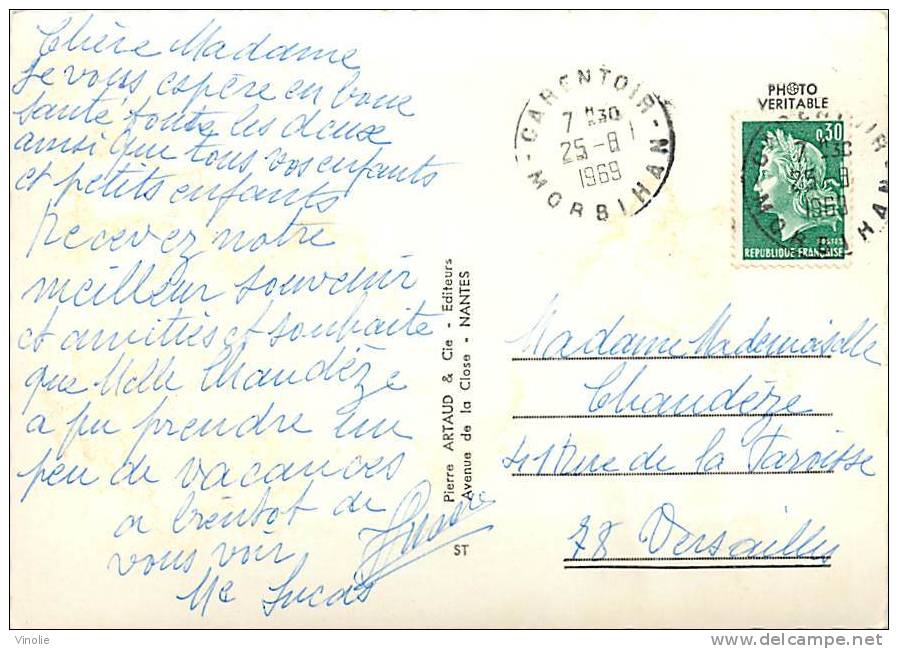 Chère Madame
Je vous espère en bone
santé toute les deux
ainsi que tous vos enfants
et petits enfants
Recevez notre
meilleur souvenir
et amitiés et souhaite
que Melle Chaudéze
a pu prendre un
peu de vacances
a bientot de
vous voir
Me Lucas
Pierre ARTAUD & Cie - Editeurs
Avenue de la Close - NANTES
ST
CARENTOIR
7 H30
25-8
1969
MORBIHAN
PHOTO
VERITABLE
0,30
POSTES
REPUBLIQUE FRANÇAISE
CARENTOIR
7 H30
25-8
1969
MORBIHAN
Madame Mademoiselle
Chaudéze
Rue de la Paroisse
78 Versailles
Vinolie
www.delcampe.net